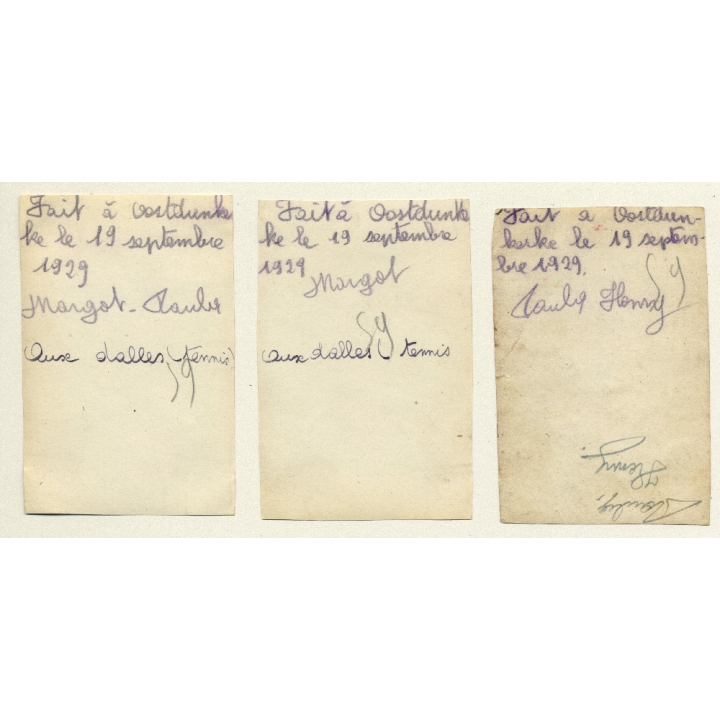 Fait à Oostdunk
ke le 19 septembre
1929
Margot - Paula
(aux dalles (tennis)
59
Fait à Oostdunk
ke le 19 septembre
1929
Margot
59
(aux dalles (tennis
Fait à Oostdun-
kerke le 19 septem-
bre 1929.
59
Henry
Henry.